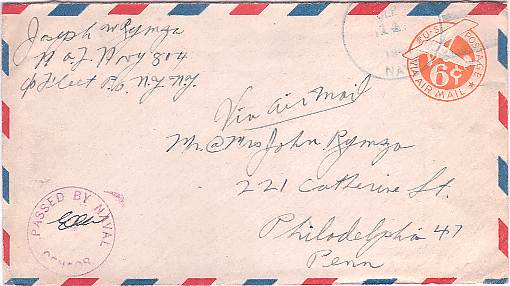 Joseph W Rymza
N O J Navy 804
c/o Fleet P.O. N.Y. N.Y.
SEP
19
NA
U.S. POSTAGE
6¢
VIA AIR MAIL
Via Air Mail
Mr. & Mrs John Rymza
221 Catherine St.
Philadelphia 47
Penn
PASSED BY NAVAL
CENSOR